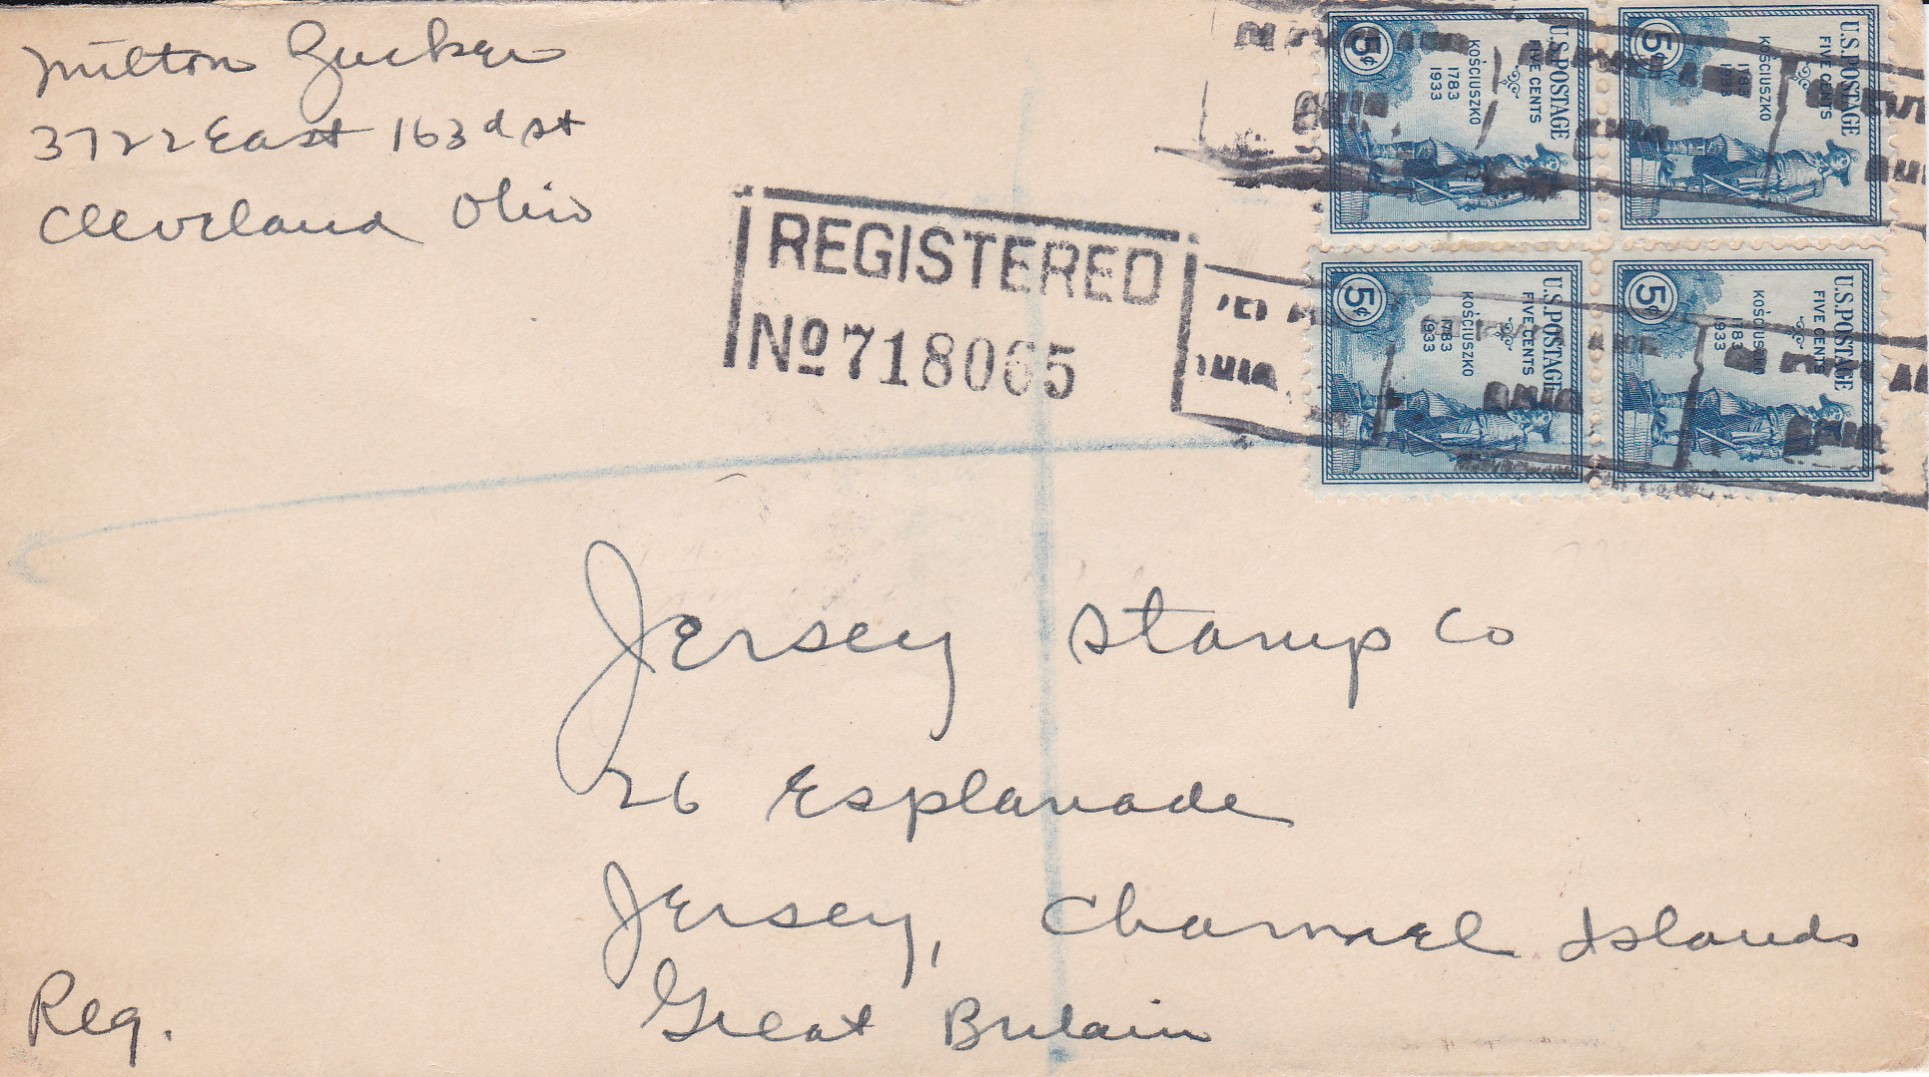 Milton Zucker
3722 East 163d St
Cleveland Ohio
REGISTERED
No 718065
U.S. POSTAGE
FIVE CENTS
KOŚCIUSZKO
1783
1933
5¢
U.S. POSTAGE
FIVE CENTS
KOŚCIUSZKO
1783
1933
5¢
U.S. POSTAGE
FIVE CENTS
KOŚCIUSZKO
1783
1933
5¢
U.S. POSTAGE
FIVE CENTS
KOŚCIUSZKO
1783
1933
5¢
OHIO
Jersey Stamp Co
26 Esplanade
Jersey, Channel Islands
Great Britain
Reg.